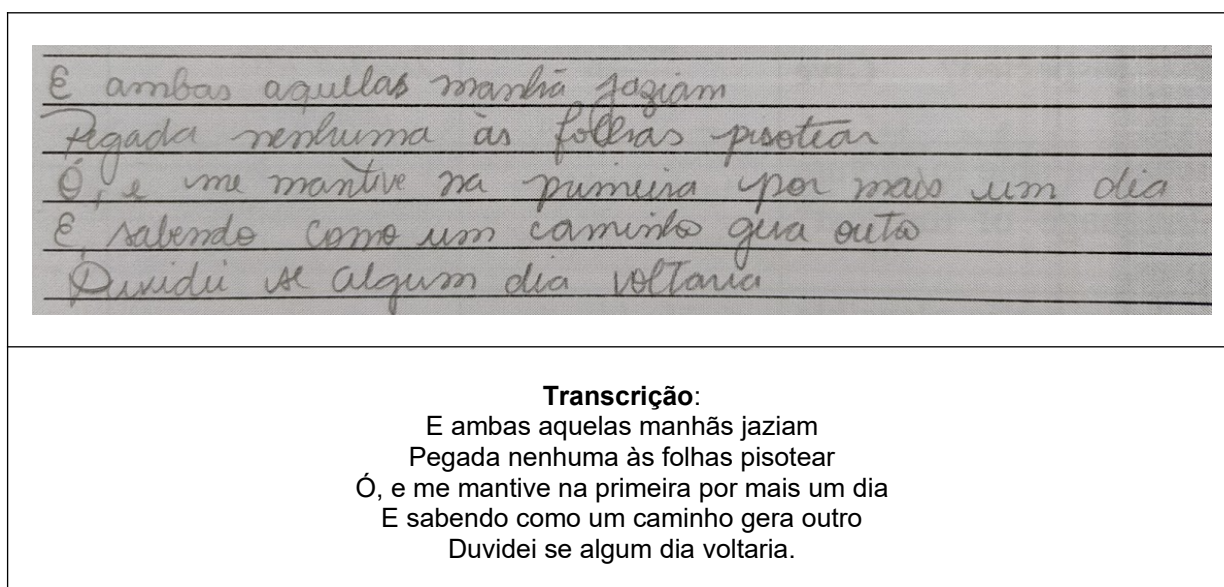 E ambas aquellas manhã jaziam
Pegada nenhuma às folhas pisotear
Ó, e me mantive na primeira por mais um dia
E, sabendo como um caminho gera outro
Duvidei se algum dia voltaria
Transcrição:
E ambas aquelas manhãs jaziam
Pegada nenhuma às folhas pisotear
Ó, e me mantive na primeira por mais um dia
E sabendo como um caminho gera outro
Duvidei se algum dia voltaria.